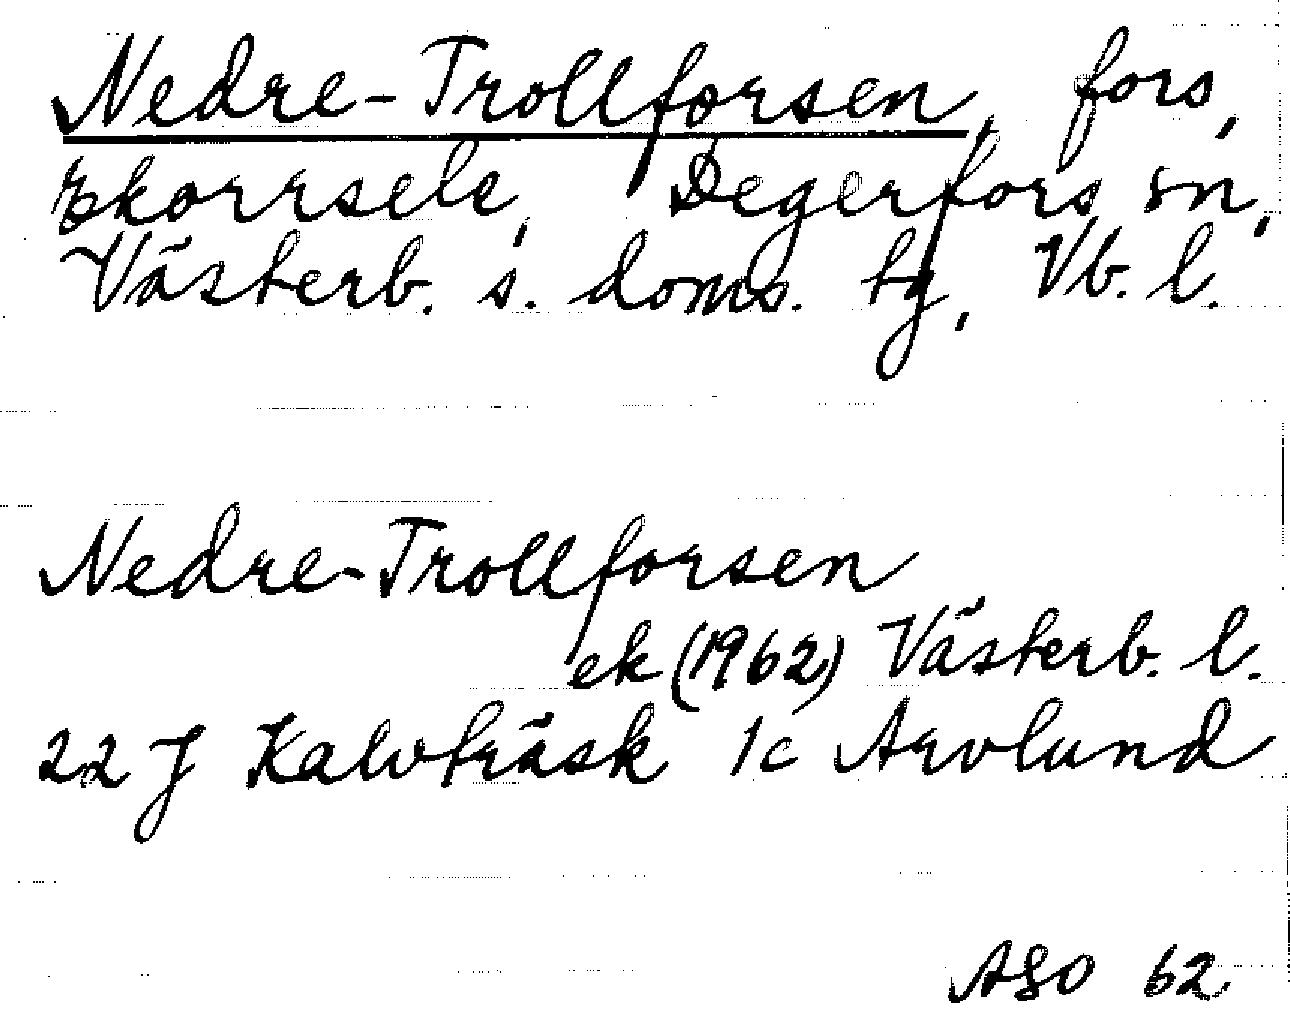 Nedre-Trollforsen, fors,
skorrsele, Degerfors sn,
Västerb. s. doms. tg, Vb. l.
Nedre-Trollforsen
ek (1962) Västerb. l.
22 J Kalvträsk 1c Arvlund
ASO 62